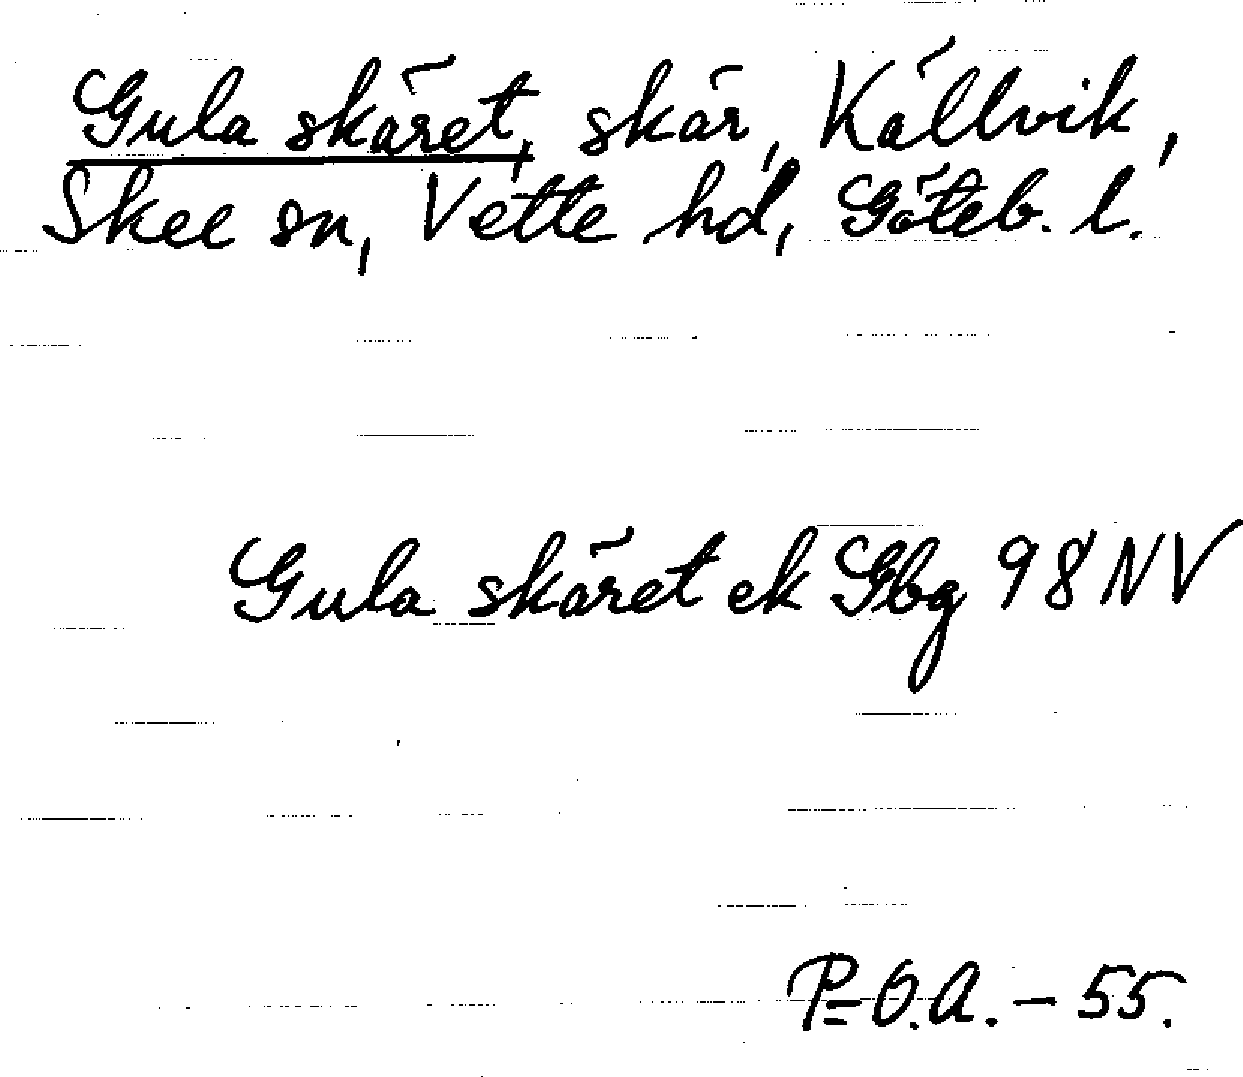 Gula skäret, skär, Källvik,
Skee sn, Vette hd, Göteb. l.
Gula skäret ek Gbg 98 NV
P-O.A. - 55.